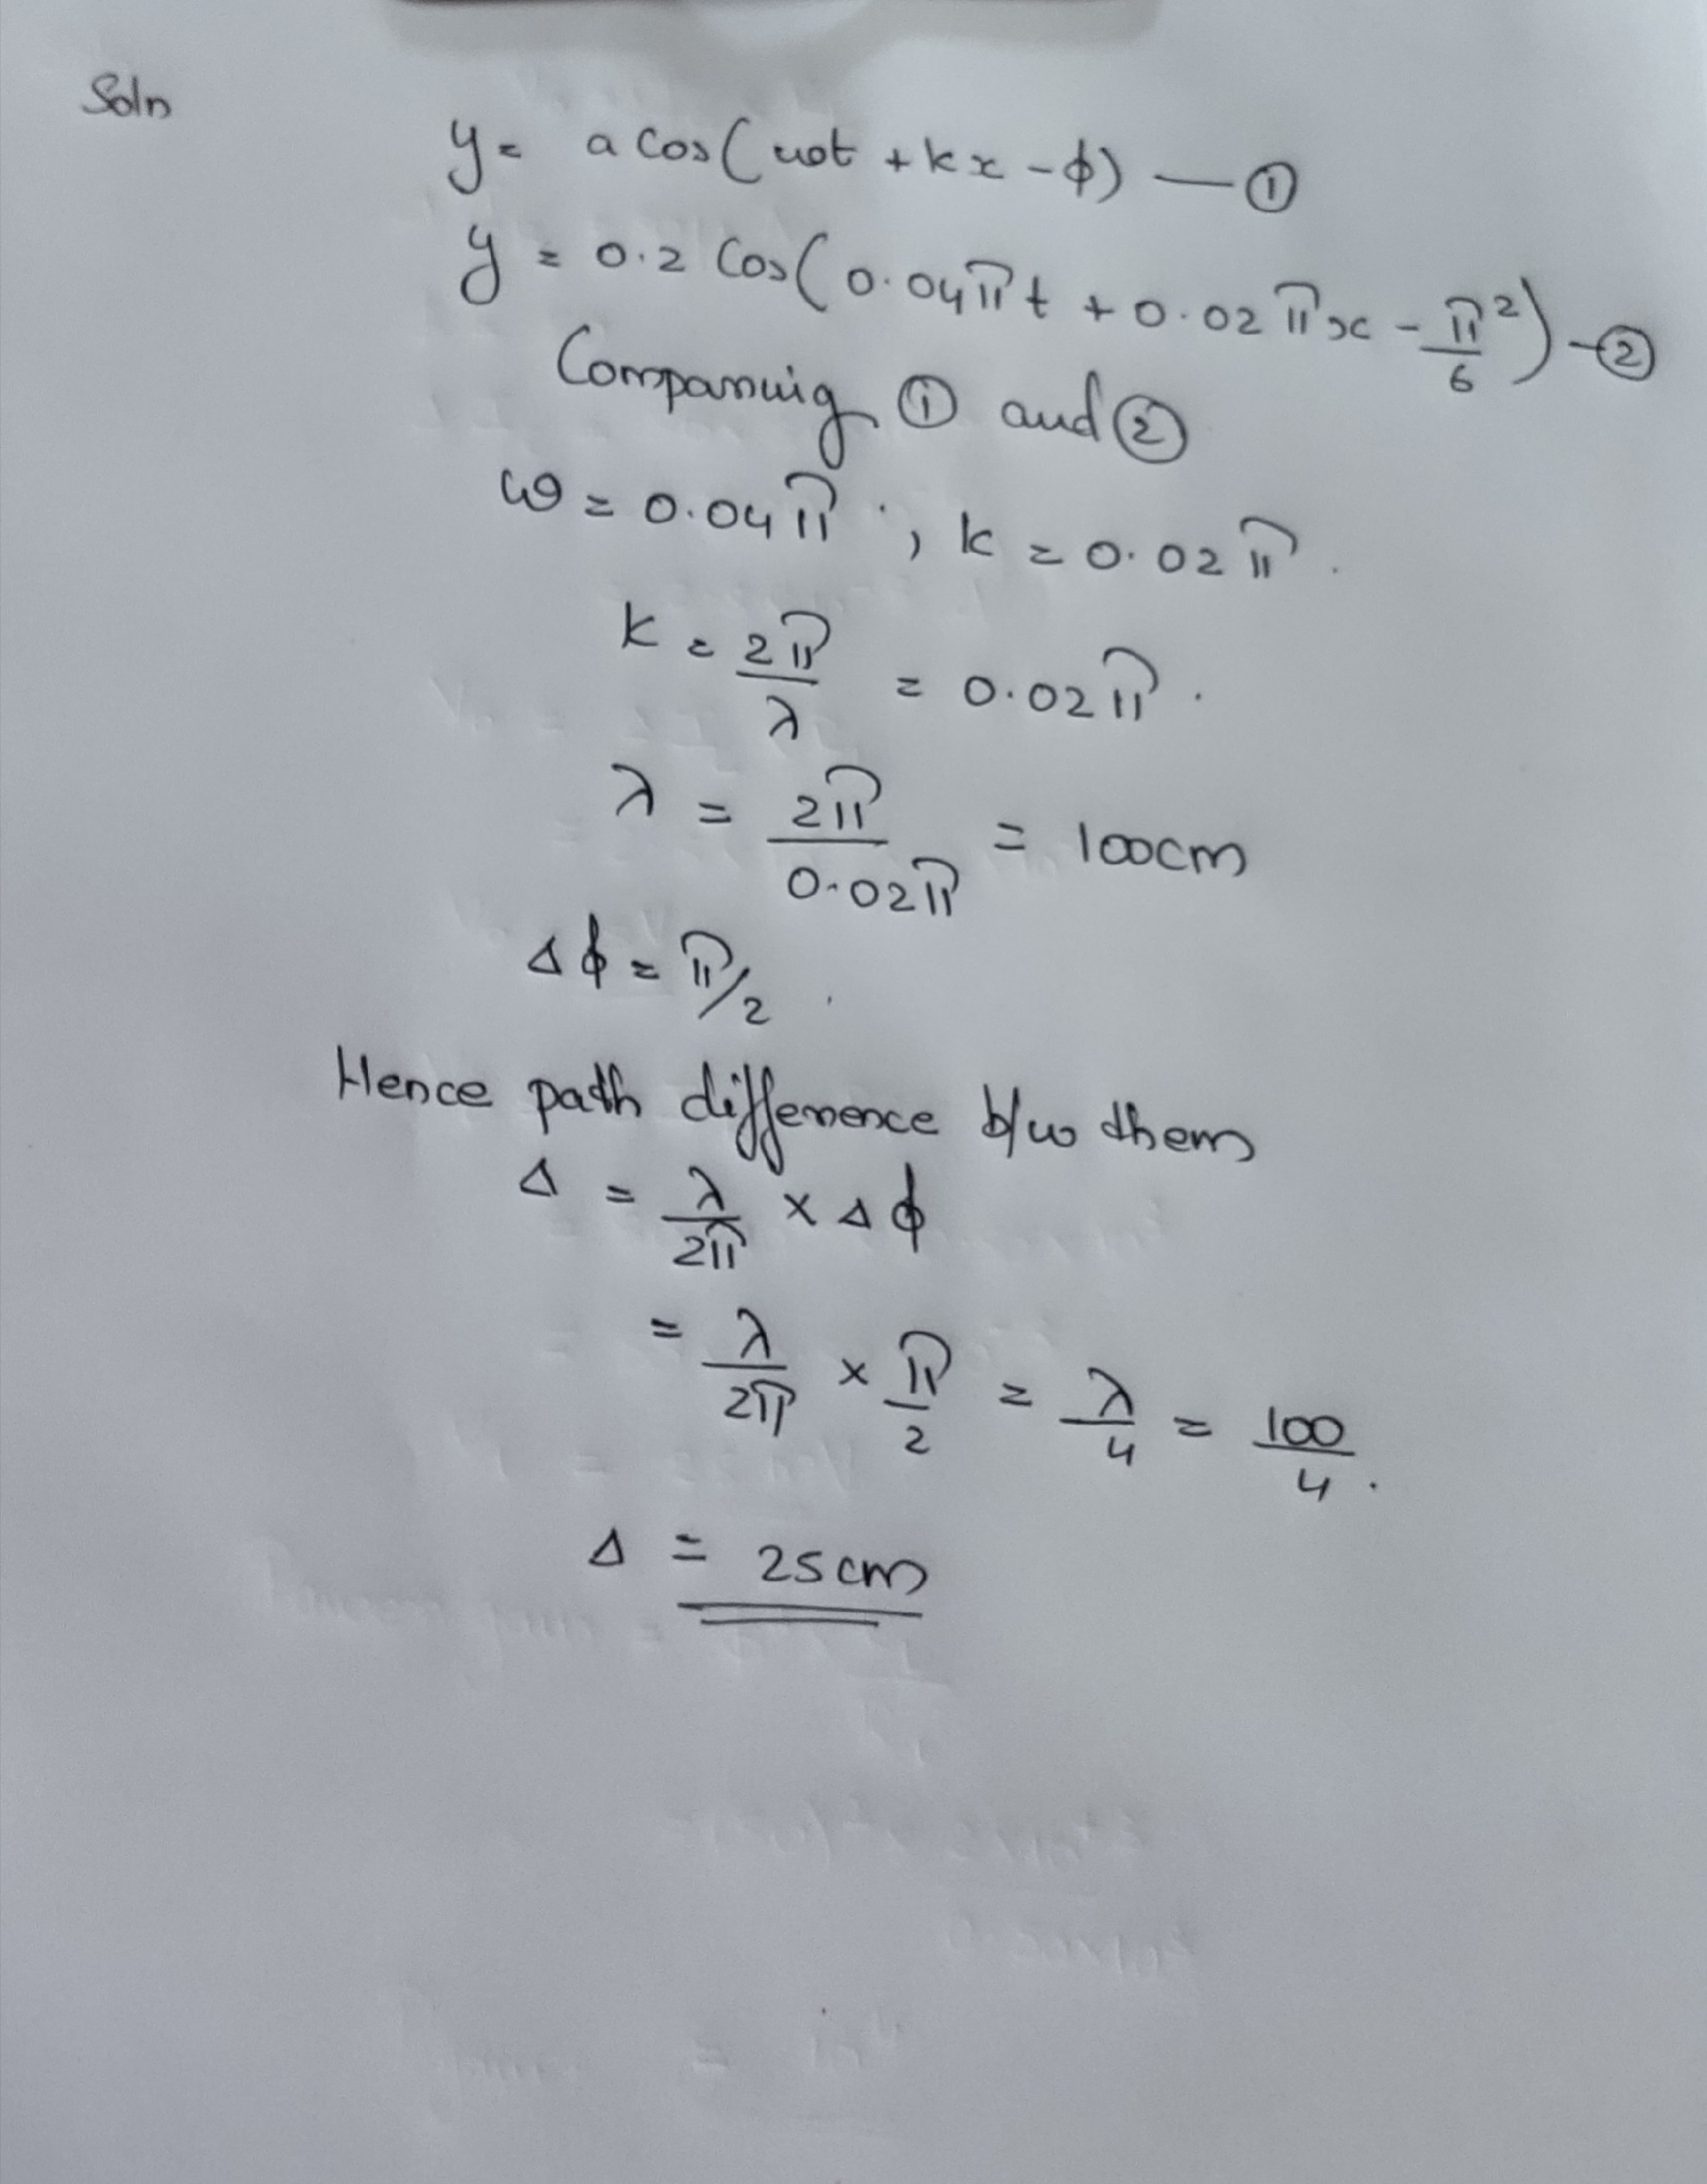 Soln
y = a cos(ωt + kx - ϕ) — ①
y = 0.2 cos(0.04πt + 0.02πx - π²/6) - ②
Comparing ① and ②
ω = 0.04π ; k = 0.02π.
k = 2π/λ = 0.02π.
λ = 2π/0.02π = 100cm
Δϕ = π/2.
Hence path difference b/w them
Δ = λ/2π × Δϕ
= λ/2π × π/2 = λ/4 = 100/4.
Δ = 25cm